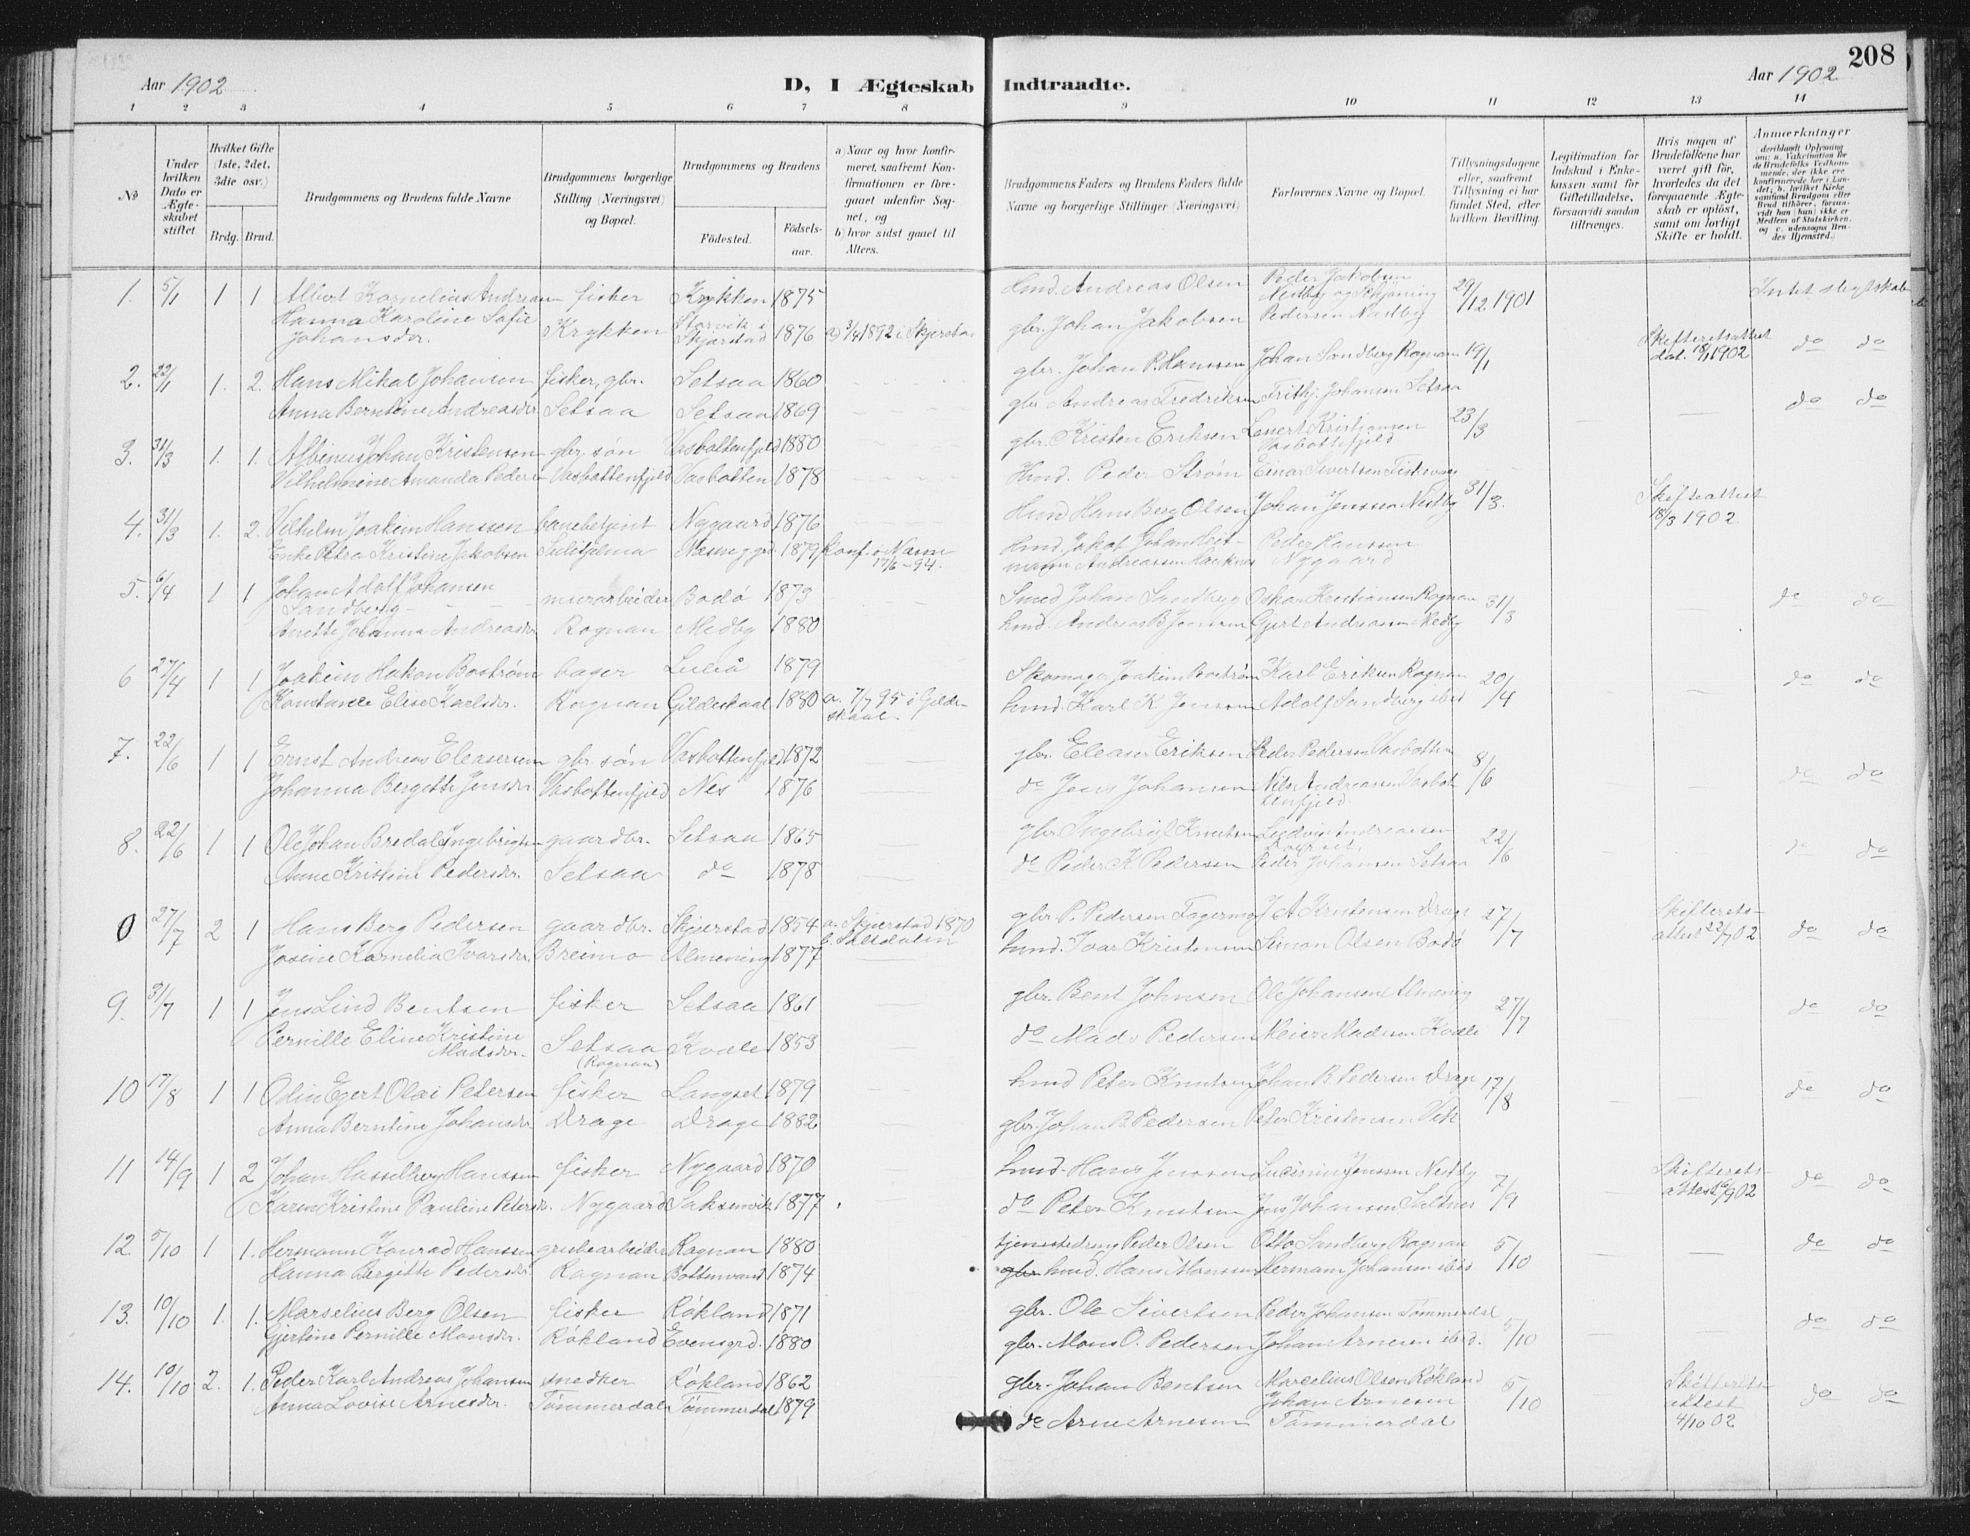 208
Aar 1902
D, I Ægteskab Indtraadte.
Aar 1902
1 2 3 4 5 6 7 8 9 10 11 12 13 14
No
Under hvilken Dato er Ægteskabet stiftet
Hvilket Gifte (1ste, 2det, 3die osv.)
Brdg. Brud.
Brudgommens og Brudens fulde Navne
Brudgommens borgerlige Stilling (Næringsvei) og Bopæl.
Brudgommens og Brudens
Fødested. Fødselsaar.
a) Naar og hvor konfirmeret, saafremt Konfirmationen er foregaaet udenfor Sognet, og
b) hvor sidst gaaet til Alters.
Brudgommens Faders og Brudens Faders fulde Navne og borgerlige Stillinger (Næringsvei)
Forlovernes Navne og Bopæl.
Tillysningsdagene eller, saafremt Tillysning ei har fundet Sted, efter hvilken Bevilling.
Legitimation for Indskud i Enkekassen samt for Giftetilladelse, forsaavidt saadan tiltrænges.
Hvis nogen af Brudefolkene har været gift før, hvorledes da det foregaaende Ægteskab er opløst, samt om lovligt Skifte er holdt.
Anmærkninger
1. 5/1 1 1 Albert Kornelius Andreasen fisker Krykken 1875 Hmd. Andreas Olsen Peder Jakobsen Nestby og Schjøning 29/12 1901 Intet slegtskab
Hanna Karoline Sofie Johansdr. Krykken Storvik i Skjærstad 1876 a) 3/4 1892 i Skjerstad gbr. Johan Jakobsen Pedersen Nestby
2. 22/1 1. 2. Hans Mikal Johansen fisker, gbr. Setsaa 1860 gbr. Johan P. Hanssen Johan Sandberg Rognan 19/1 Skifteretsattest dat. 18/1 1902 do do
Anna Berntine Andreasdr. Setsaa Setsaa 1869 gbr Andreas Fredriksen Frithj. Johansen Setsaa
3. 31/3 1. 1. Albinus Johan Kristensen gbr. søn Vasbottenfjeld 1880 gbr. Kristen Eriksen Lenert Kristiansen Vasbottefjeld 23/3 do do
Vilhelmine Amanda Peders Vasbottenfjeld Vasbotten 1878 Hmd. Peder Strøm Einar Sivertsen
4. 31/3 1. 2. Vilhelm Joakim Hanssen banebetjent Nygaard 1876 Hmd Hans Berg Olsen Johan Jenssen Nestby 31/3. Skifteattest 18/3 1902.
Enke Petra Kristine Jakobsen Sulitjelma 1879 Konf. i 17/6-94. hmd. Jakob Johan Peder Hanssen Nygaard
5. 6/4 1 1 Johan Adolf Johansen Sandberg murarbeider Bodø 1873 Smed Johan Sandberg Oskar Kristiansen Rognan 31/3 do do
Anette Johanna Andreasdr Rognan Medby 1880 hmd. Andreas B. Jensen Gjert Andreassen Medby
6 27/4 1 1 Joakim Hakon Bostrøm bager Luleå 1879 Skomager Joakim Bostrøm Karl Eriksen Rognan 20/4 do do
Konstance Elise Karlsdr. Rognan Gildeskaal 1880 a. 7/7 95 i Gildeskaal hmd. Karl K. Jensen Adolf Sandberg ibid
7. 22/6 1 1 Ernst Andreas Eleasersen gbr. søn Vasbottenfjeld 1872 gbr. Eleaser Eriksen Peder Pedersen Vasbotten 8/6 do do
Johanna Bergitte Jensdr. Vasbottenfjeld Nes 1876 do Jens Johansen Nils Andreassen Vasbottenfjeld
8. 22/6 1 1 Ole Johan Bredal Ingebrigtsen gaardbr. Setsaa 1865 gbr Ingebrigt Knutsen Ludvig Andreassen 22/6 do do
Anne Kristine Pedersdr. Setsaa do 1878 do Peder K Pedersen Peder Johansen Setsaa
0 27/7 2 1 Hans Berg Pedersen gaardbr. Skjerstad 1854 a. Skjerstad 1870 b. Saltdalen gbr P. Pedersen J A Kristensen Drage 27/7 Skifteretsattest 22/7 02 do do
Josine Kornelia Ivarsdr. Breimo Almening 1877 hmd. Ivar Kristensen Simon Olsen Bodø
9. 31/7 1 1 Jens Lind Bentsen fisker Setsaa 1861 gbr. Bent Johnsen Ole Johansen Almening 27/7 do do
Pernille Eline Kristine Madsdr. Setsaa (Rognan) Kvæle 1853 do Mads Pedersen Meier Madsen Kvæle
10 17/8 1 1 Odin Egert Olai Petersen fisker Langset 1879 hmd Peter Knutsen Johan B. Pedersen Drage 17/8 do do
Anna Berntine Johansdr. Drage Drage 1882 gbr. Johan B. Pedersen Peter Kristensen Vik
11 14/9 1 2 Johan Hasselberg Hanssen fisker Nygaard 1870 hmd. Hans Jenssen Jenssen Nestby 7/9 Skifteretsattest 6/9 02 do do
Karen Kristine Pauline Petersdr. Nygaard Saksenvik 1877 do Peter Knutsen Jens Johansen Saltnes
12. 5/10 1 1. Hermann Konrad Hanssen grubearbeider Rognan 1880 tjenestedreng Peder Olsen Otto Sandberg Rognan 5/10 do do
Hanna Bergitte Pedersdr. Rognan Bottenvand 1874 gbr hmd. Hans Monssen Hermann Johansen ibid
13. 10/10 1. 1. Marselius Berg Olsen fisker Røkland 1871 gbr. Ole Sivertsen Peder Johansen Tømmerdal 5/10 do do
Gjertine Pernille Monsdr. Røkland Evensgrd. 1880 gbr. Mons O. Pedersen Johan Arnesen ibid.
14. 10/10 2. 1. Peder Karl Andreas Johansen snedker Røkland 1862 gbr. Johan Bentsen Marselius Olsen Røkland 5/10 Skifteretsattest 4/10 02 do do
Anna Lovise Arnesdr. Tømmerdal Tømmerdal 1879 do Arne Arnesen Johan Arnesen Tømmerdal